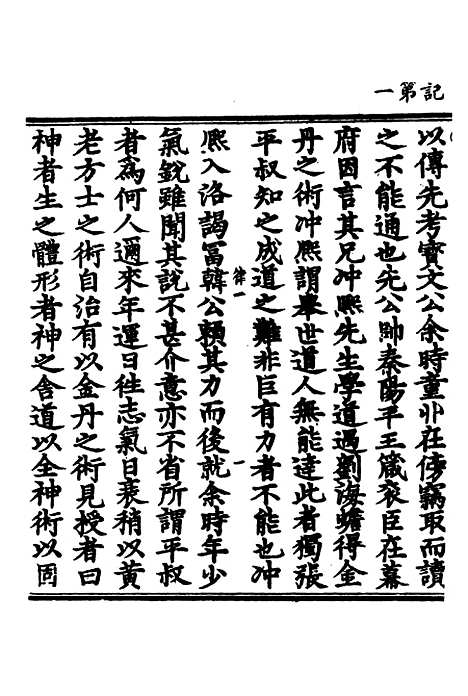 記第一
以傳先考寳文公余時童丱在傍竊取而讀
之不能通也先公帥秦陽平王箴衮臣在幕
府因言其兄冲熈先生學道遇劉海蟾得金
丹之術冲熈謂舉世道人無能達此者獨張
平叔知之成道之難非巨有力者不能也冲
律一 一
熈入洛謁冨韓公頼其力而後就余時年少
氣銳雖聞其說不甚介意亦不省所謂平叔
者爲何人邇來年運日徃志氣日衰稍以黄
老方士之術自治有以金丹之術見授者曰
神者生之體形者神之舎道以全神術以固